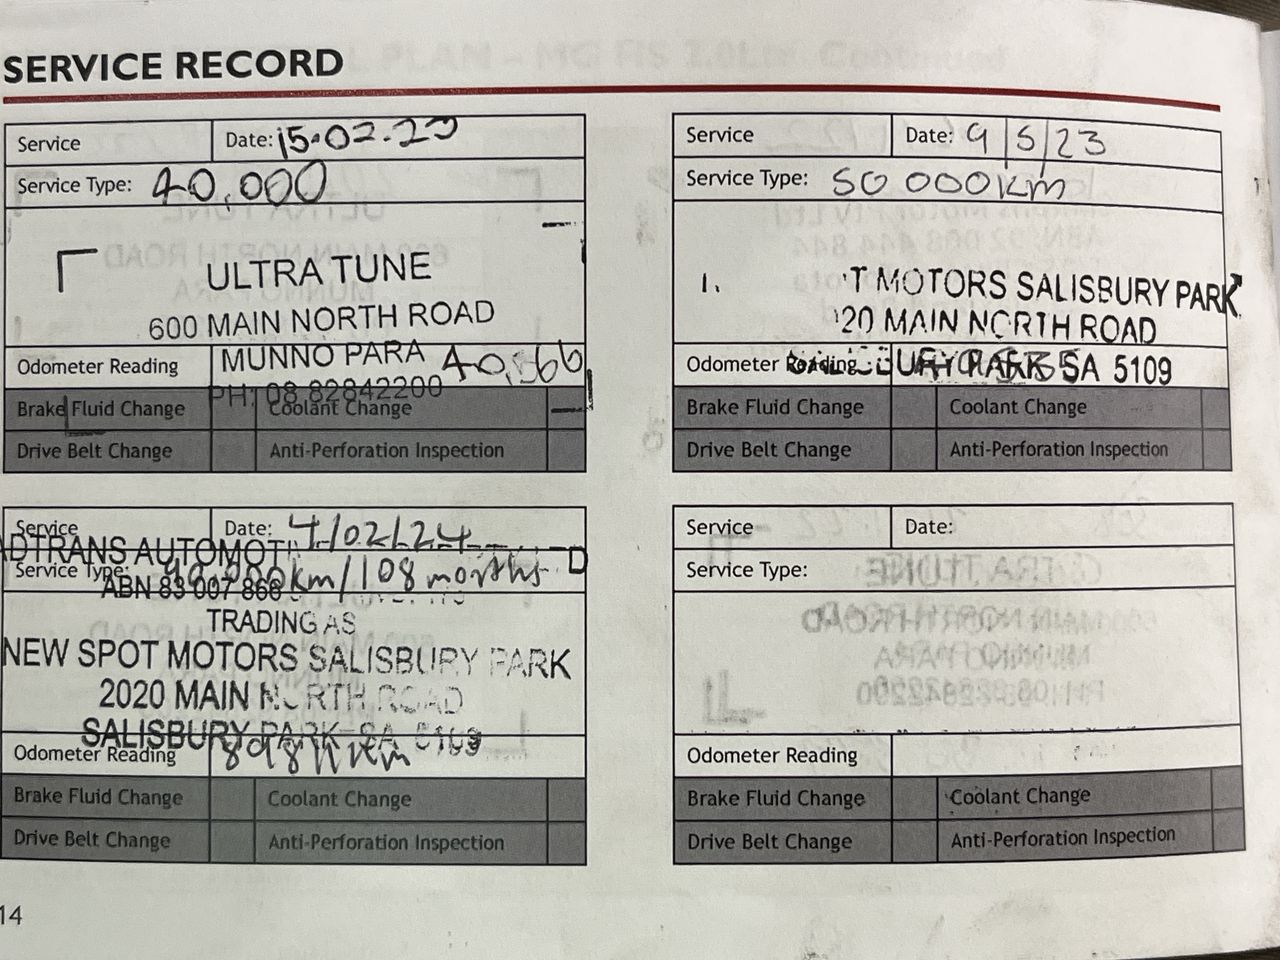 SERVICE RECORD
Service Date: 15.02.23
Service Type: 40,000
ULTRA TUNE
600 MAIN NORTH ROAD
MUNNO PARA
Odometer Reading 40,566
PH: 08 82842200
Brake Fluid Change Coolant Change
Drive Belt Change Anti-Perforation Inspection
Service Date: 9/5/23
Service Type: 50 000km
T MOTORS SALISBURY PARK
20 MAIN NORTH ROAD
Odometer Reading BURY PARK SA 5109
Brake Fluid Change Coolant Change
Drive Belt Change Anti-Perforation Inspection
Service Date: 4/02/24
ADTRANS AUTOMOTI
Service Type: km/108 months
ABN 83 007 866
TRADING AS
NEW SPOT MOTORS SALISBURY PARK
2020 MAIN NORTH ROAD
SALISBURY PARK SA 5109
Odometer Reading
Brake Fluid Change Coolant Change
Drive Belt Change Anti-Perforation Inspection
Service Date:
Service Type:
Odometer Reading
Brake Fluid Change Coolant Change
Drive Belt Change Anti-Perforation Inspection
14